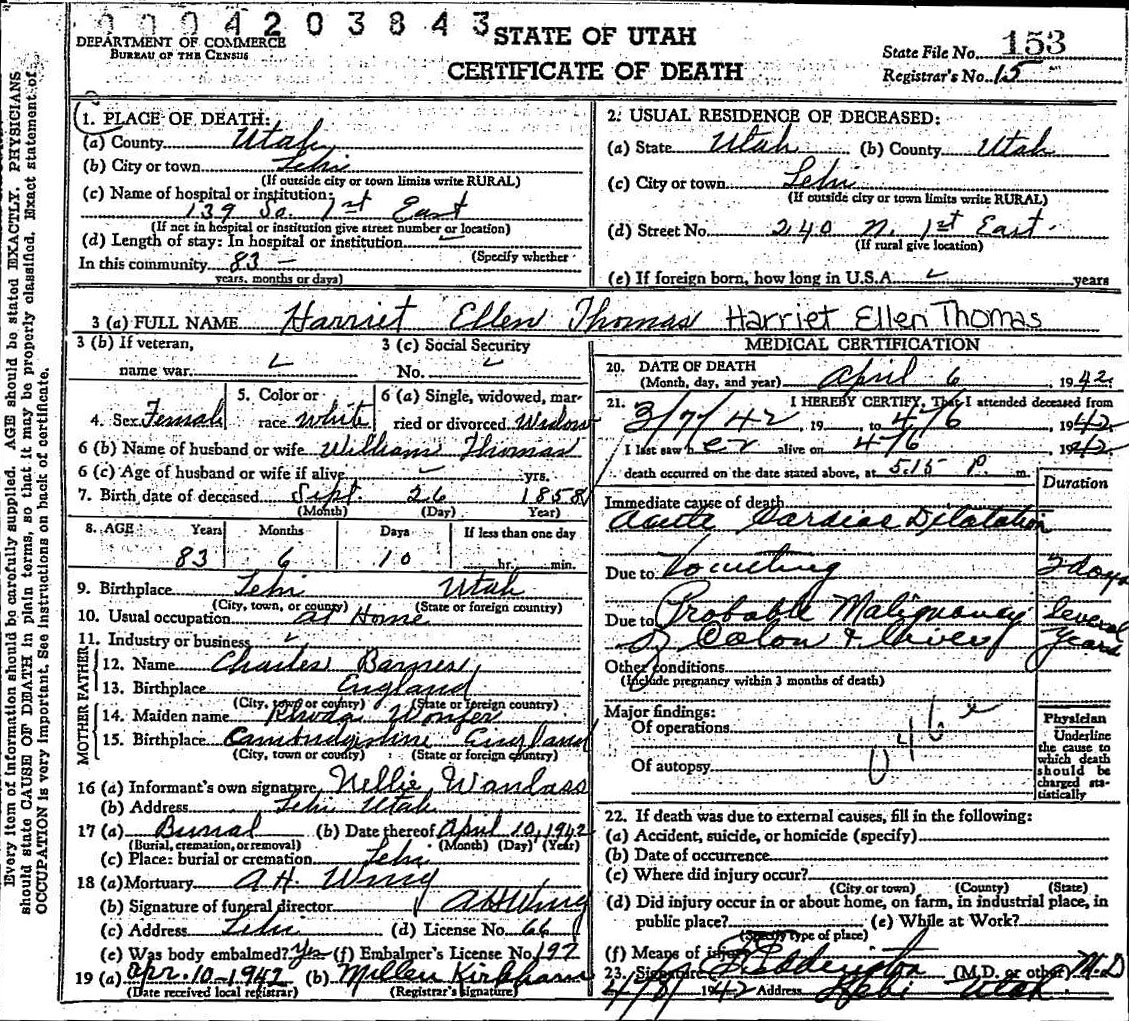 0004203843
DEPARTMENT OF COMMERCE
BUREAU OF THE CENSUS
STATE OF UTAH
CERTIFICATE OF DEATH
State File No. 153
Registrar's No. 15
Every item of information should be carefully supplied. AGE should be stated EXACTLY. PHYSICIANS
should state CAUSE OF DEATH in plain terms, so that it may be properly classified. Exact statement of
OCCUPATION is very important. See instructions on back of certificate.
1. PLACE OF DEATH:
(a) County Utah
(b) City or town Lehi
(If outside city or town limits write RURAL)
(c) Name of hospital or institution:
139 So. 1st East
(If not in hospital or institution give street number or location)
(d) Length of stay: In hospital or institution
(Specify whether
In this community 83 -
years, months or days)
2. USUAL RESIDENCE OF DECEASED:
(a) State Utah (b) County Utah
(c) City or town Lehi
(If outside city or town limits write RURAL)
(d) Street No. 240 N. 1st East
(If rural give location)
(e) If foreign born, how long in U.S.A. years
3 (a) FULL NAME Harriet Ellen Thomas Harriet Ellen Thomas
3 (b) If veteran,
name war
3 (c) Social Security
No.
4. Sex Female
5. Color or
race white
6 (a) Single, widowed, mar-
ried or divorced Widow
6 (b) Name of husband or wife William Thomas
6 (c) Age of husband or wife if alive yrs.
7. Birth date of deceased Sept. 26 1858
(Month) (Day) Year)
8. AGE: Years Months Days If less than one day
83 6 10 hr. min.
9. Birthplace Lehi Utah
(City, town, or county) (State or foreign country)
10. Usual occupation at Home
11. Industry or business
FATHER
12. Name Charles Barnes
13. Birthplace England
(City, town or county) (State or foreign country)
MOTHER
14. Maiden name Rhoda Wonfer
15. Birthplace Cambridgeshire England
(City, town or county) (State or foreign country)
16 (a) Informant's own signature Nellie Wanlass
(b) Address Lehi Utah
17 (a) Burial (b) Date thereof April 10, 1942
(Burial, cremation, or removal) (Month) (Day) (Year)
(c) Place: burial or cremation Lehi
18 (a) Mortuary A.H. Wing
(b) Signature of funeral director AHWing
(c) Address Lehi (d) License No. 66
(e) Was body embalmed? Yes (f) Embalmer's License No. 197
19 (a) Apr. 10-1942 (b) Millen Kirkham
(Date received local registrar) (Registrar's signature)
MEDICAL CERTIFICATION
20. DATE OF DEATH
(Month, day, and year) April 6, 1942
21. I HEREBY CERTIFY, That I attended deceased from
3/7/42, 19 , to 4/6 1942
I last saw her alive on 4/6 1942
death occurred on the date stated above, at 5:15 P. m.
Duration
Immediate cause of death
Acute Cardiac Dilatation
Due to Vomiting 2 days
Due to Probable Malignancy several
of Colon & Liver years
Other conditions
(Include pregnancy within 3 months of death)
Major findings:
Of operations
046 e
Of autopsy
Physician
Underline
the cause to
which death
should be
charged sta-
tistically
22. If death was due to external causes, fill in the following:
(a) Accident, suicide, or homicide (specify)
(b) Date of occurrence
(c) Where did injury occur?
(City or town) (County) (State)
(d) Did injury occur in or about home, on farm, in industrial place, in
public place? (e) While at Work?
(Specify type of place)
(f) Means of injury
23. Signature Eddington (M.D. or other) M.D
4/8/1942 Address Lehi Utah